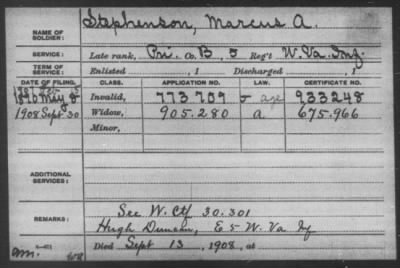 NAME OF SOLDIER: Stephenson, Marcus A.
SERVICE: Late rank, Pri. Co. B, 5 Reg't W. Va. Inf.
TERM OF SERVICE: Enlisted , 1 Discharged , 1
DATE OF FILING. CLASS. APPLICATION NO. LAW. CERTIFICATE NO.
1890 May Invalid, 773709 age 933248
1908 Sept 30 Widow, 905.280 a. 675.966
Minor,
ADDITIONAL SERVICES:
REMARKS: See W. Ctf 30.301
Hugh Duncan, E 5 W. Va Inf
Died Sept 13, 1908, at